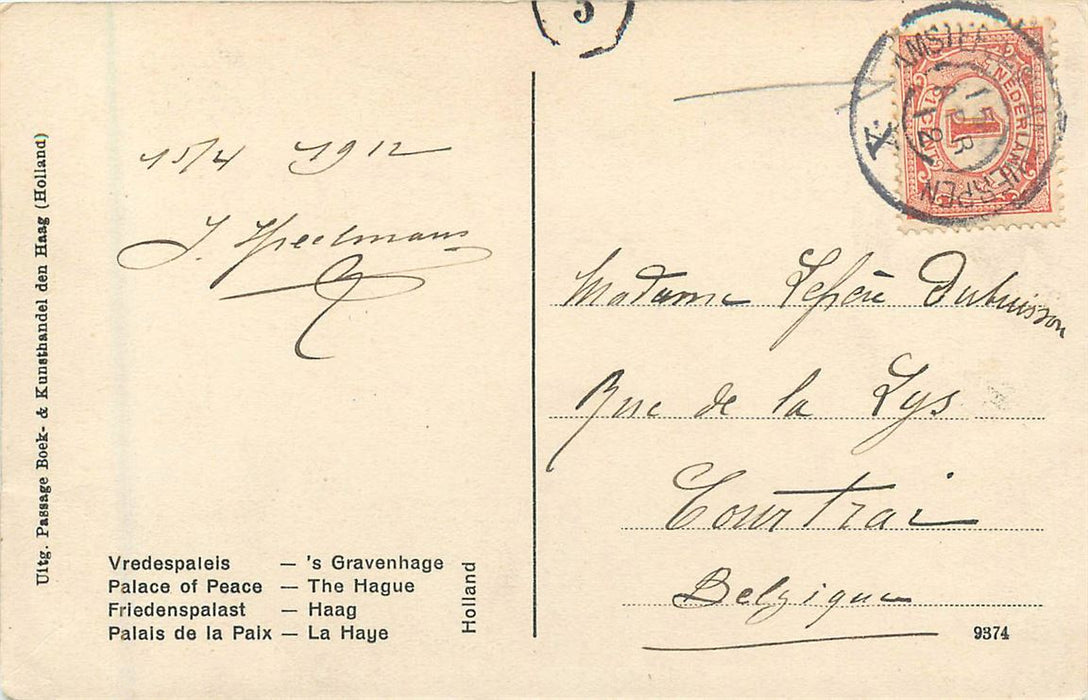 5
AMSTERD
ANTWERPEN
15
APR
12
X
NEDERLAND
1
1 CENT
15/4 1912
J. Speelmans
Madame Lefère Dubuisson
Rue de la Lys
Courtrai
Belgique
Uitg. Passage Boek- & Kunsthandel den Haag (Holland)
Vredespaleis — 's Gravenhage
Palace of Peace — The Hague
Friedenspalast — Haag
Palais de la Paix — La Haye
Holland
9374